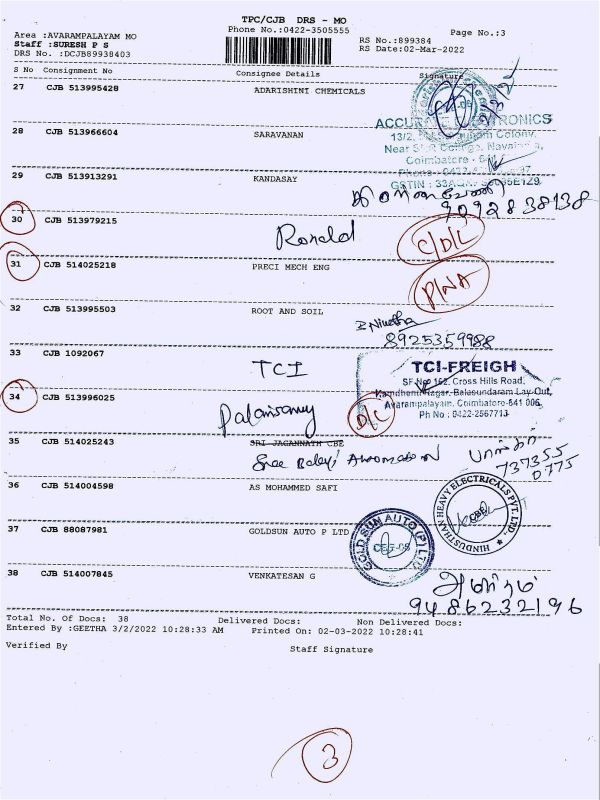 TPC/CJB DRS - MO
Phone No.:0422-3505555
Page No.:3
Area :AVARAMPALAYAM MO
Staff :SURESH P S
DRS No. :DCJB89938403
RS No.:899384
RS Date:02-Mar-2022
S No Consignment No Consignee Details Signature
27 CJB 513995428 ADARISHINI CHEMICALS
ACCURATE ELECTRONICS
Colony,
Coimbatore
28 CJB 513966604 SARAVANAN
29 CJB 513913291 KANDASAY
9092838138
30 CJB 513979215 Ronald C/D/L
31 CJB 514025218 PRECI MECH ENG P/N/A
32 CJB 513995503 ROOT AND SOIL
8925359988
33 CJB 1092067 TCI
TCI-FREIGH
SF No 162, Cross Hills Road,
Kamdhenu Nagar, Balasundaram Lay-Out,
Avarampalayam, Coimbatore-641 006.
Ph No : 0422-2567713
34 CJB 513996025 Palanisamy D/L
35 CJB 514025243 SRI JAGANNATH CBE
Sree Balaji Automation
737355
0775
36 CJB 514004598 AS MOHAMMED SAFI
HINDUSTHAN HEAVY ELECTRICALS PVT. LTD.,
37 CJB 88087981 GOLDSUN AUTO P LTD
GOLD SUN AUTO (P) LTD
CBE-06
38 CJB 514007845 VENKATESAN G
9486232196
Total No. Of Docs: 38 Delivered Docs: Non Delivered Docs:
Entered By :GEETHA 3/2/2022 10:28:33 AM Printed On: 02-03-2022 10:28:41
Verified By Staff Signature
3